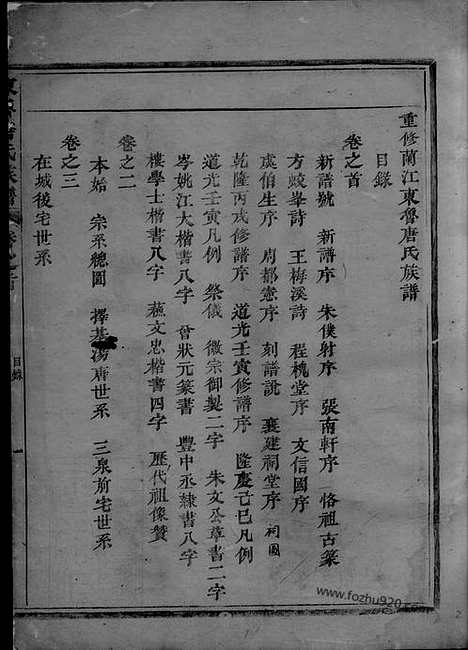 重修蘭江東魯唐氏族譜
目錄
卷之首
新譜號 新譜序 朱僕射序 張南軒序 恪祖古篆
方蛟峯詩 王梅溪詩 程槐堂序 文信國序
虞伯生序 周都憲序 刻譜說 襄建祠堂序 祠圖
乾隆丙戌修譜序 道光壬寅修譜序 隆慶己巳凡例
道光壬寅凡例 祭儀 徽宗御製二字 朱文公草書二字
岑姚江大楷書八字 曾狀元篆書 豐中丞隸書八字
樓學士楷書八字 蘇文忠楷書四字 歷代祖像贊
卷之二
本始 宗系總圖 擇基湯唐世系 三泉前宅世系
卷之三
在城後宅世系
目錄
www.fozhu920.com